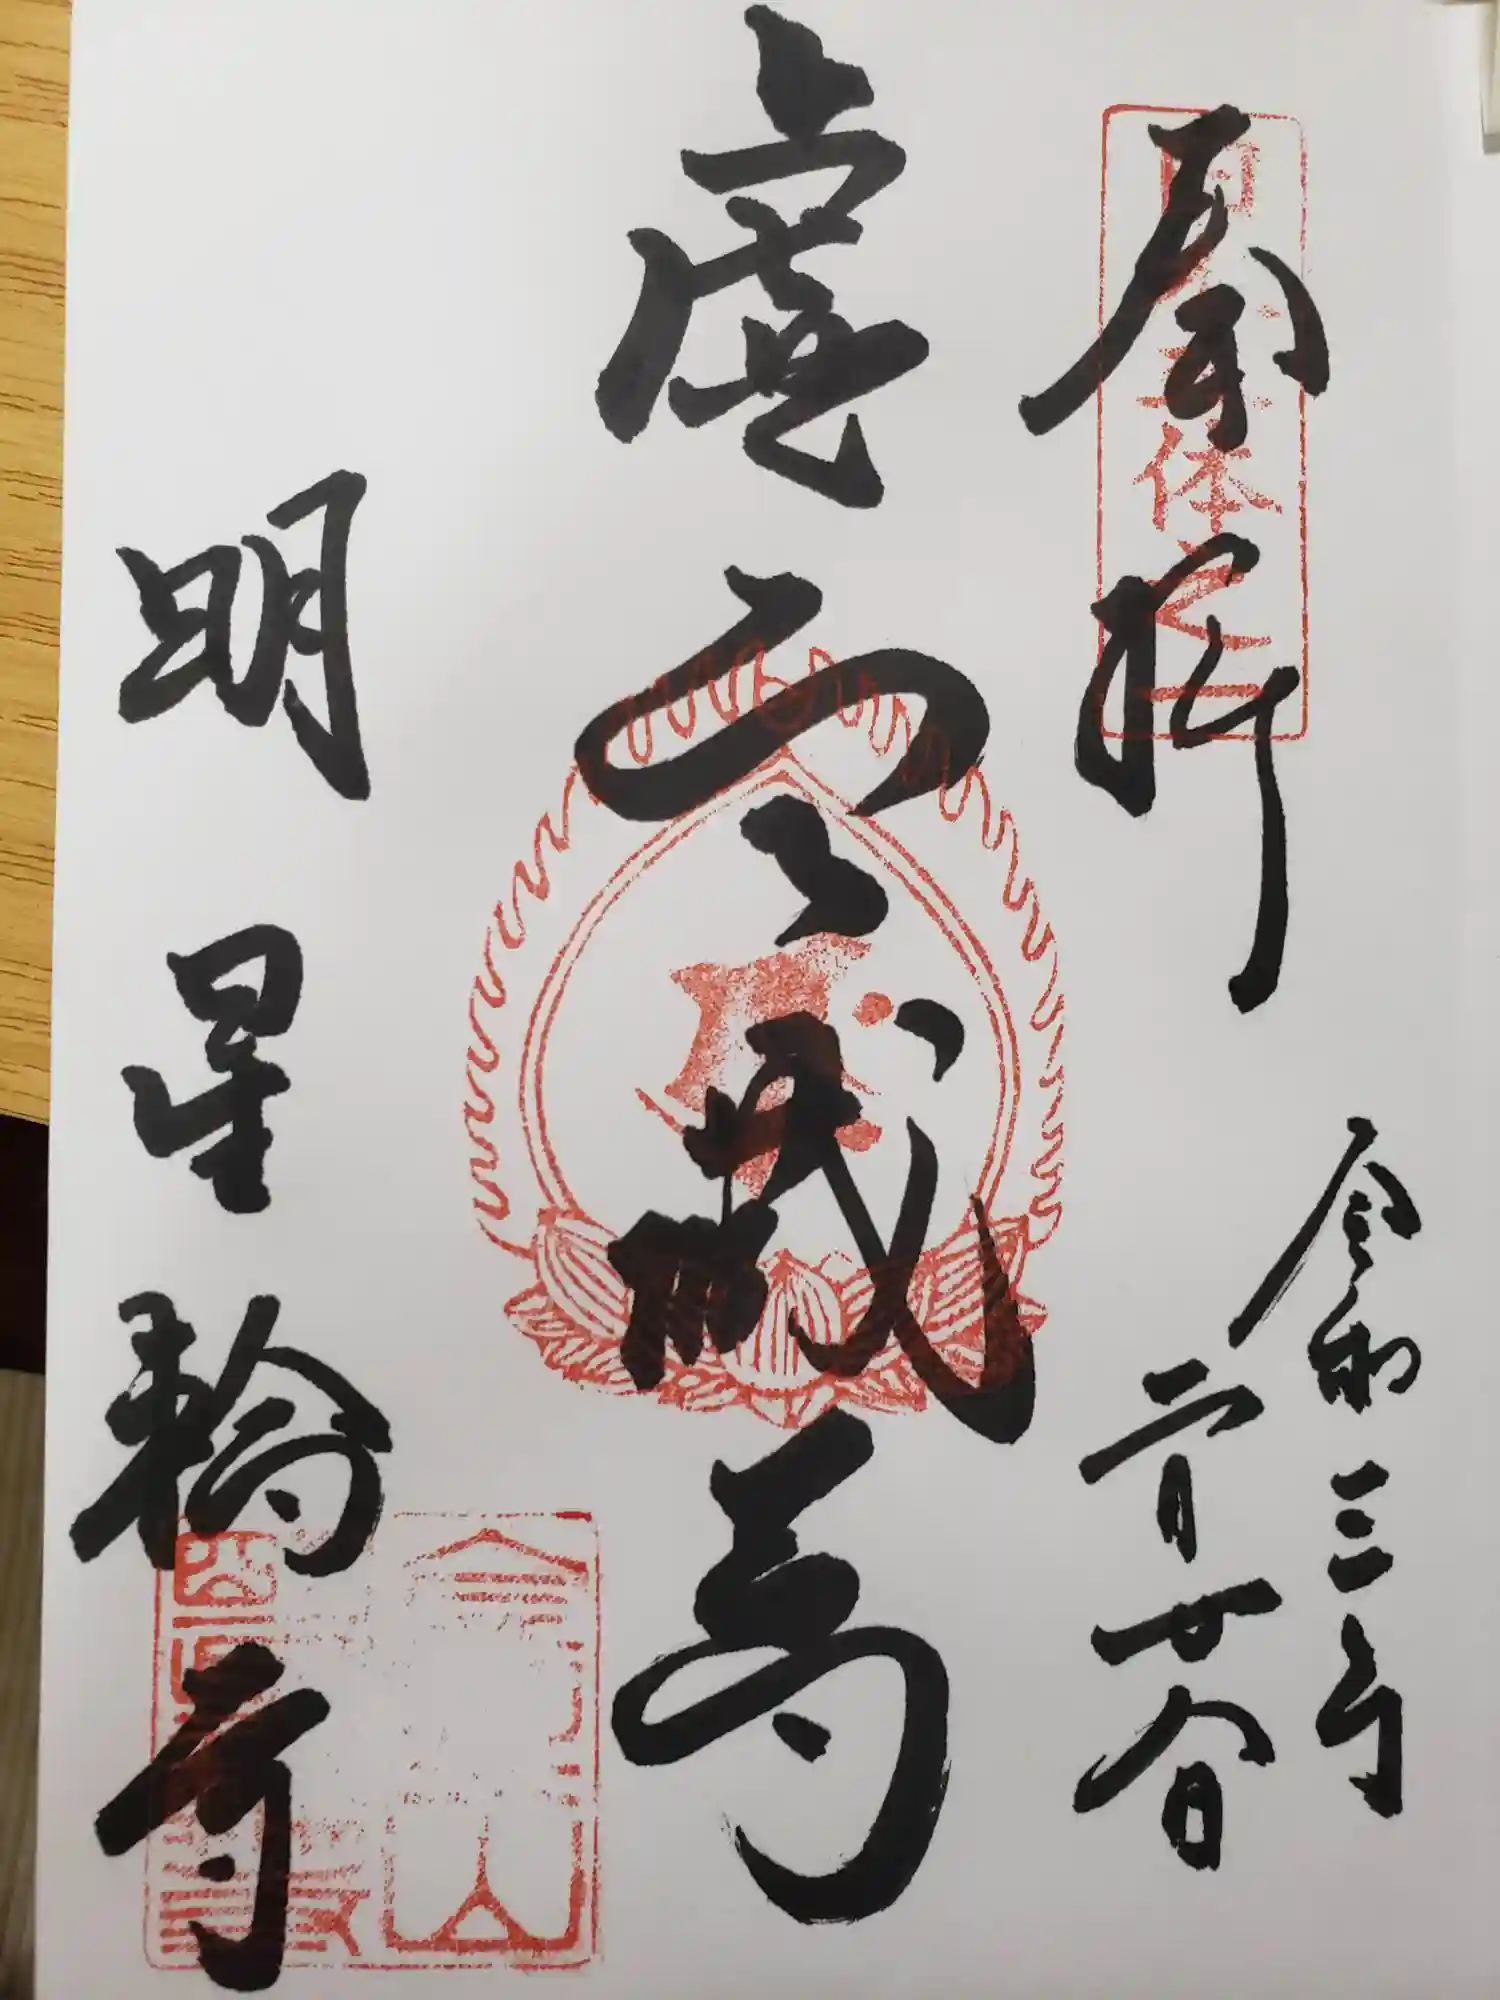 奉拝
令和三年
二月廿八日
虚空蔵尊
明星輪寺